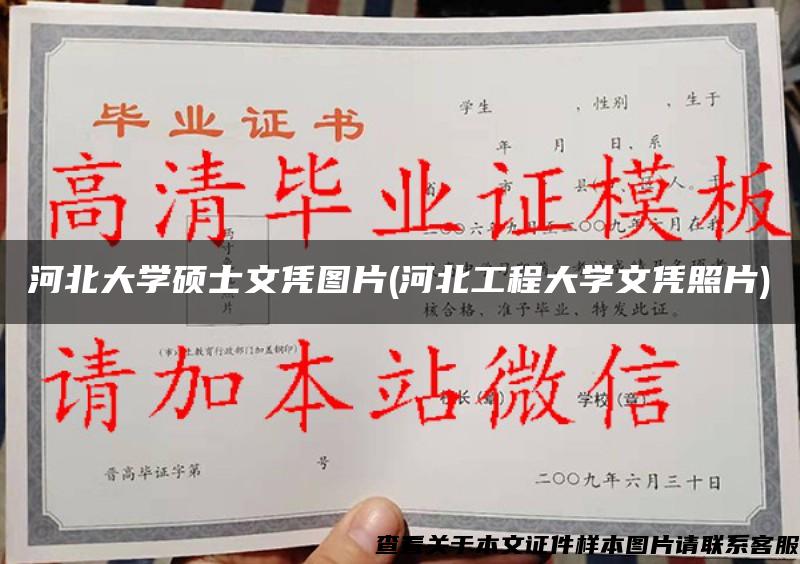 学生 ，性别 ，生于
毕业证书
年 月 日、系
高清毕业证模板
省 市 县 人。于
二〇〇六年九月至二〇〇九年六月在我
河北大学硕士文凭图片(河北工程大学文凭照片)
核合格、准予毕业、特发此证。
请加本站微信
校长(章) 学校(章)
晋高毕证字第 号
二〇〇九年六月三十日
查看关于本文证件样本图片请联系客服